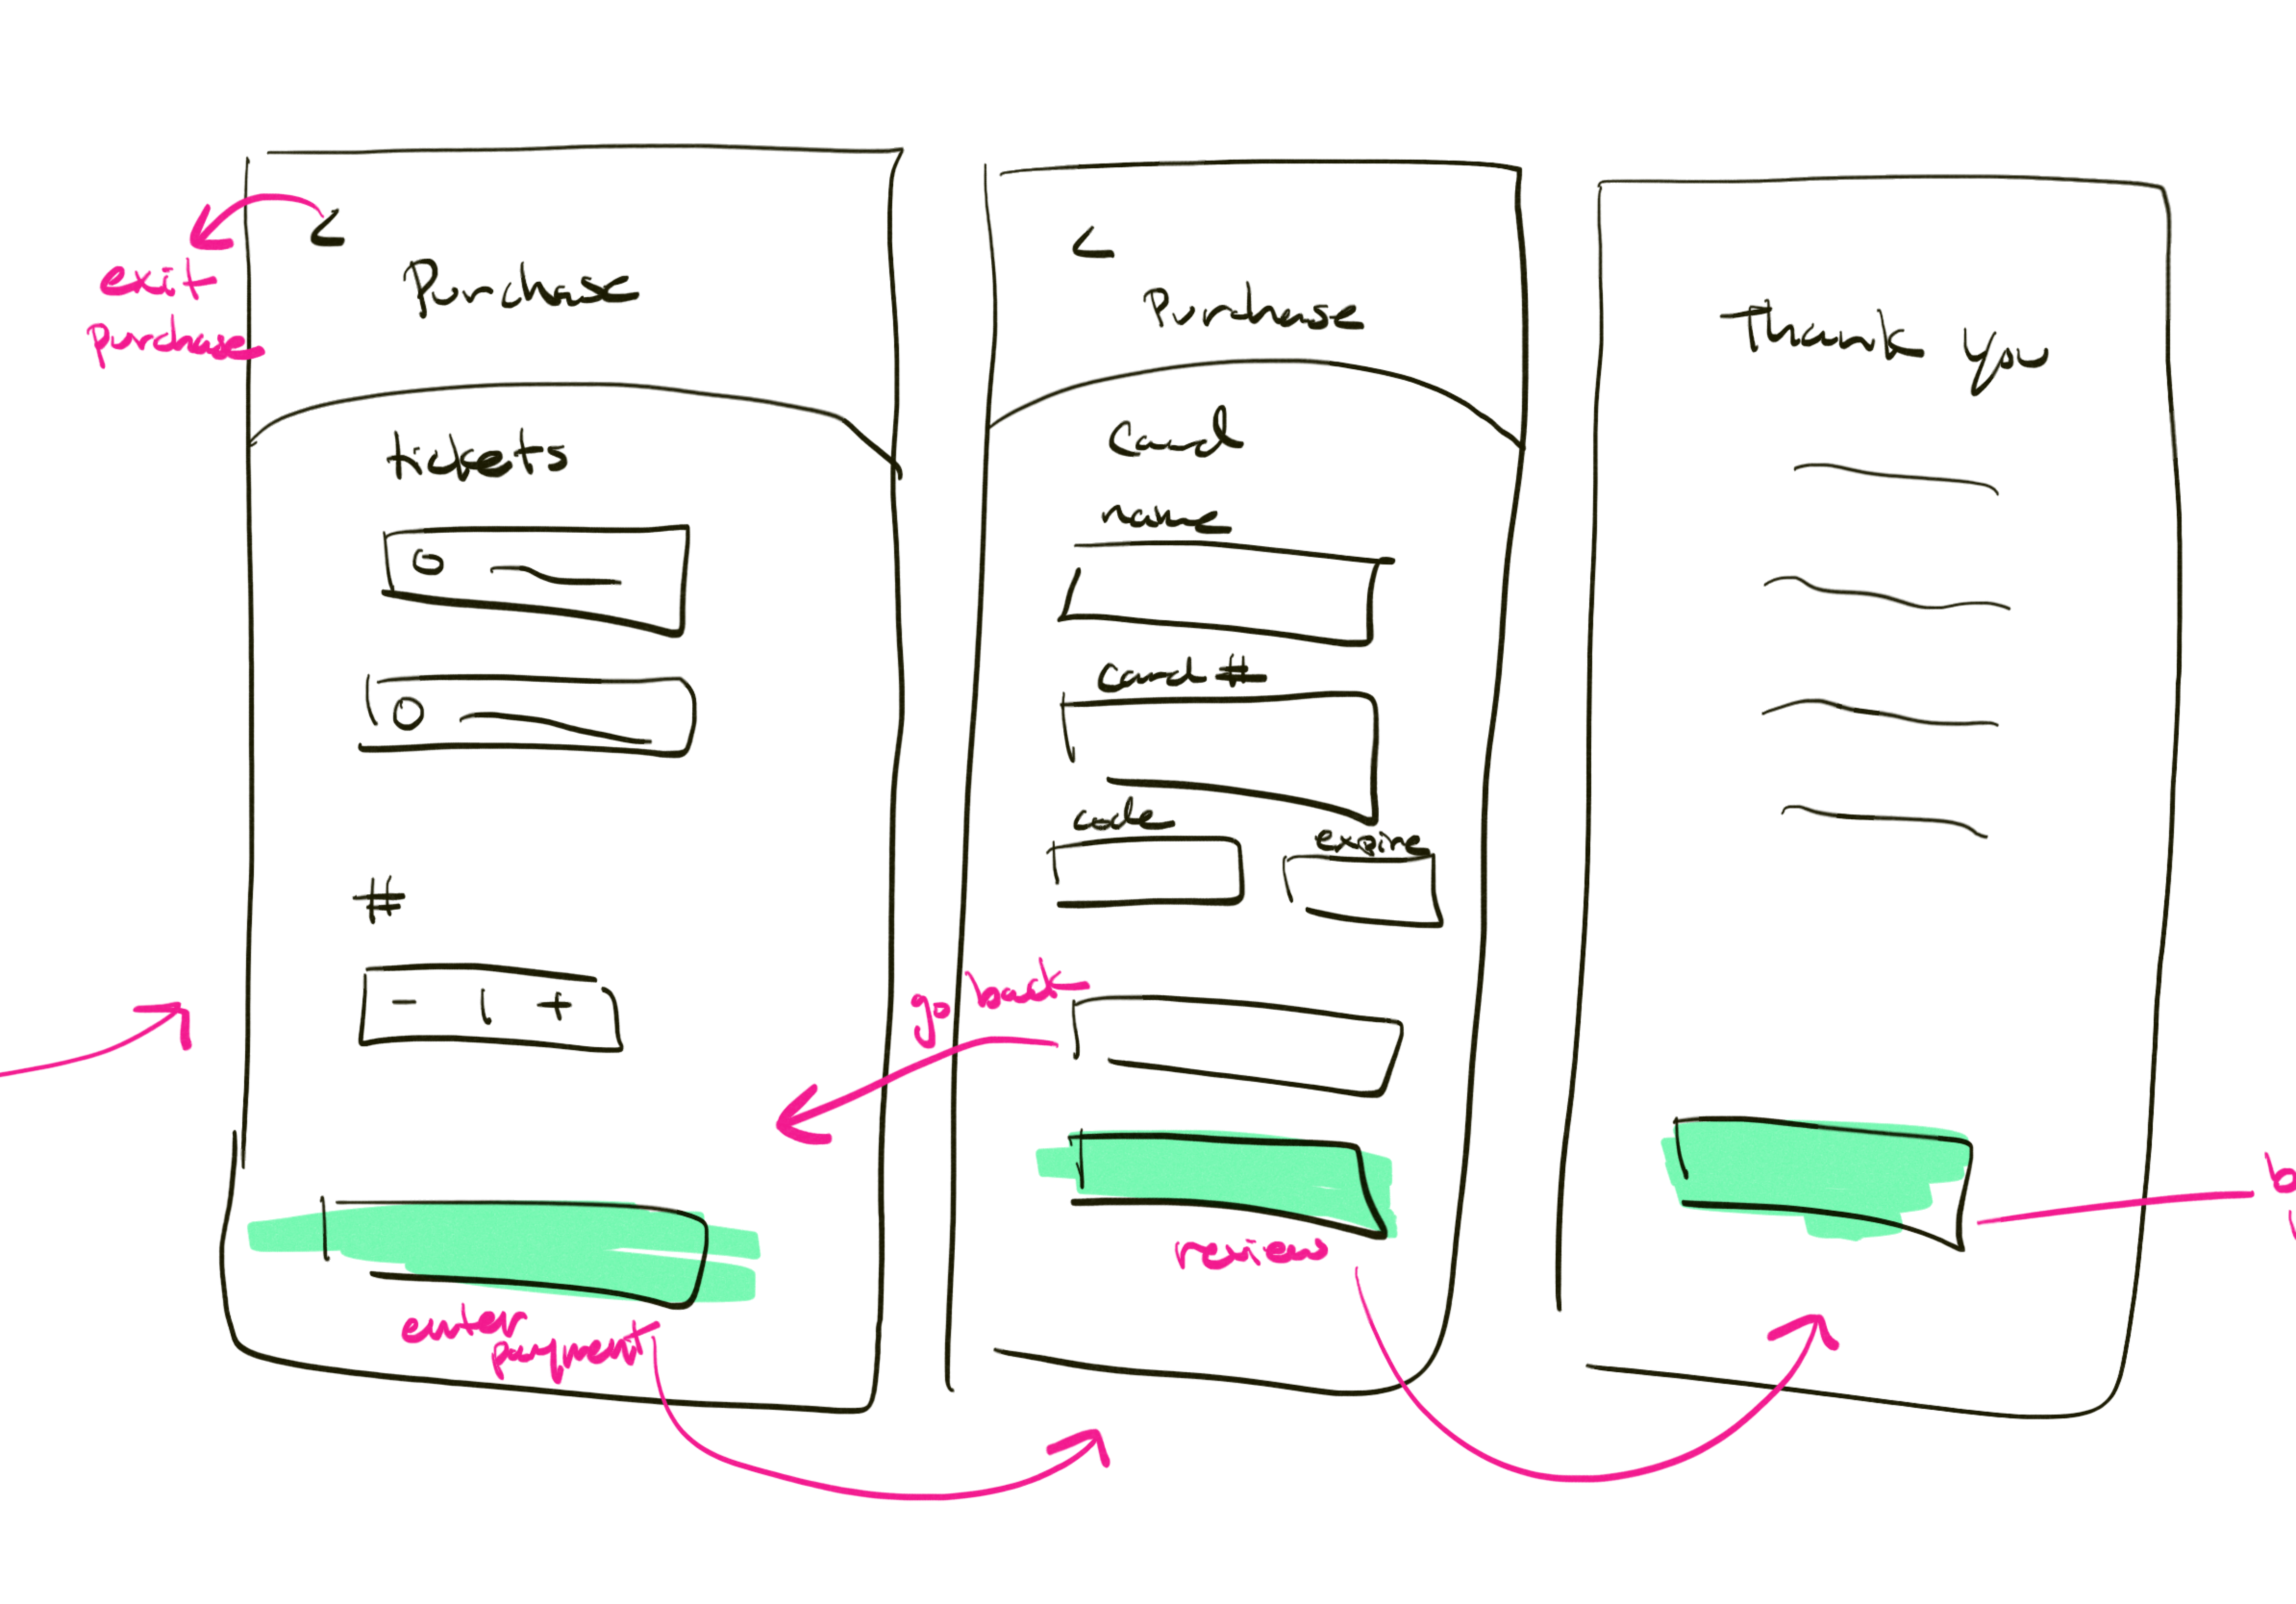 <
exit
purchase
Purchase
tickets
#
- | +
enter
payment
<
Purchase
Card
name
card #
code
expire
go back
review
Thank you